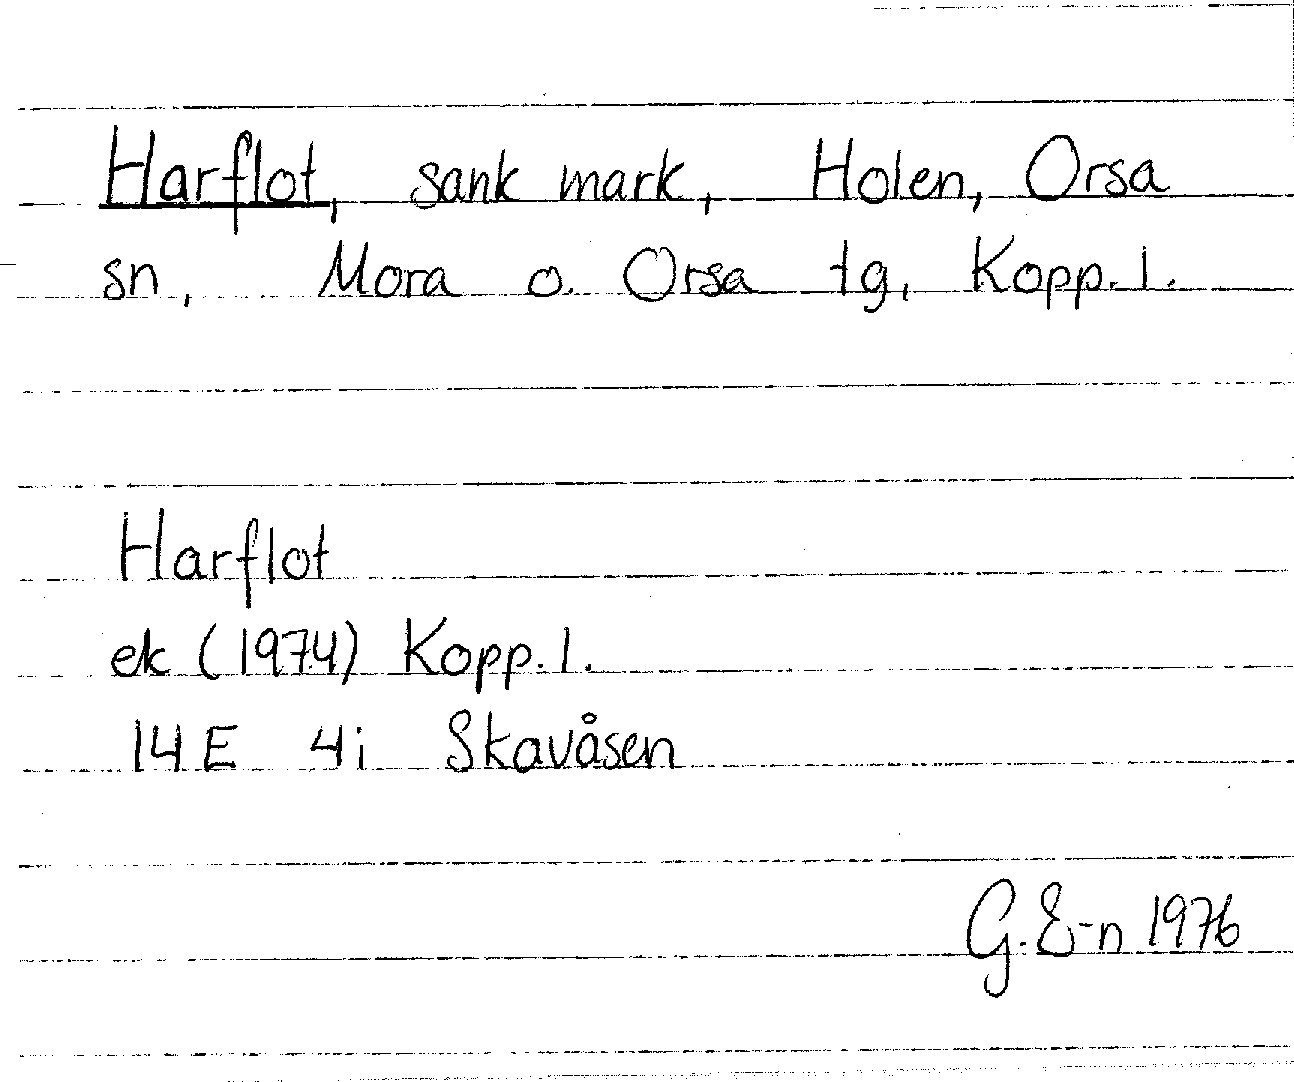 Harflot, sank mark, Holen, Orsa
sn, Mora o. Orsa tg, Kopp. l.
Harflot
ek (1974) Kopp. l.
14 E 4i Skavåsen
G. E-n 1976